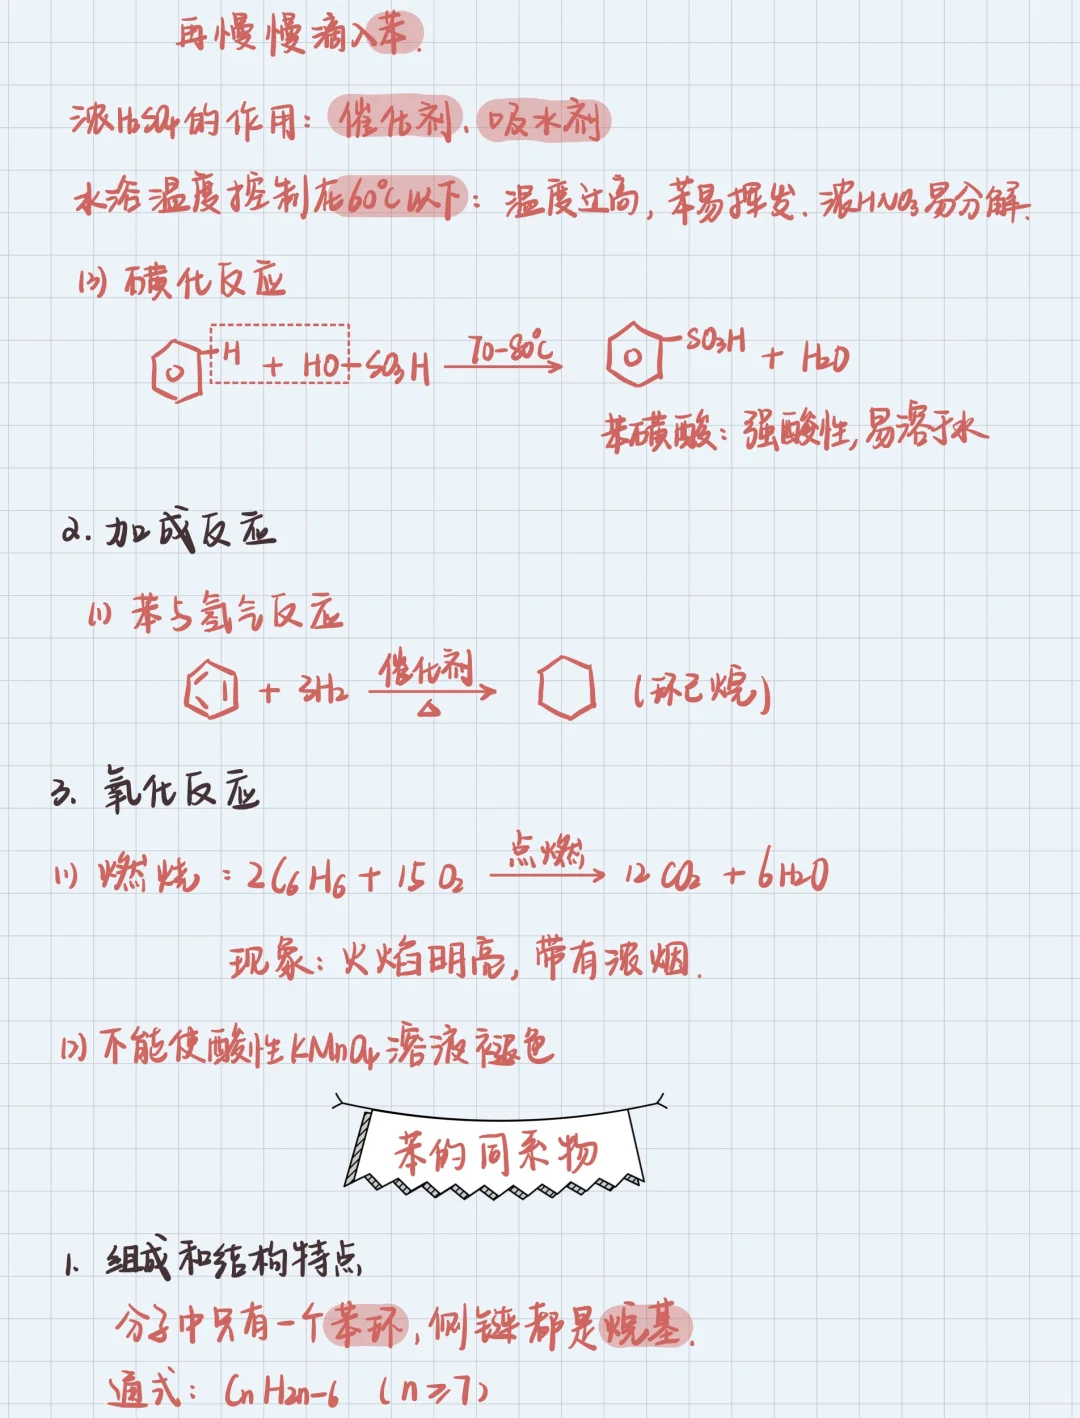 再慢慢滴入苯.
浓H2SO4的作用：催化剂、吸水剂
水浴温度控制在60℃以下：温度过高，苯易挥发、浓HNO3易分解.
(3) 磺化反应
H + HO-SO3H 70-80℃ SO3H + H2O
苯磺酸：强酸性，易溶于水
2. 加成反应
(1) 苯与氢气反应
+ 3H2 催化剂 △ (环己烷)
3. 氧化反应
(1) 燃烧：2C6H6 + 15O2 点燃 12CO2 + 6H2O
现象：火焰明亮，带有浓烟.
(2) 不能使酸性KMnO4溶液褪色
苯的同系物
1. 组成和结构特点
分子中只有一个苯环，侧链都是烷基.
通式：CnH2n-6 (n≥7)